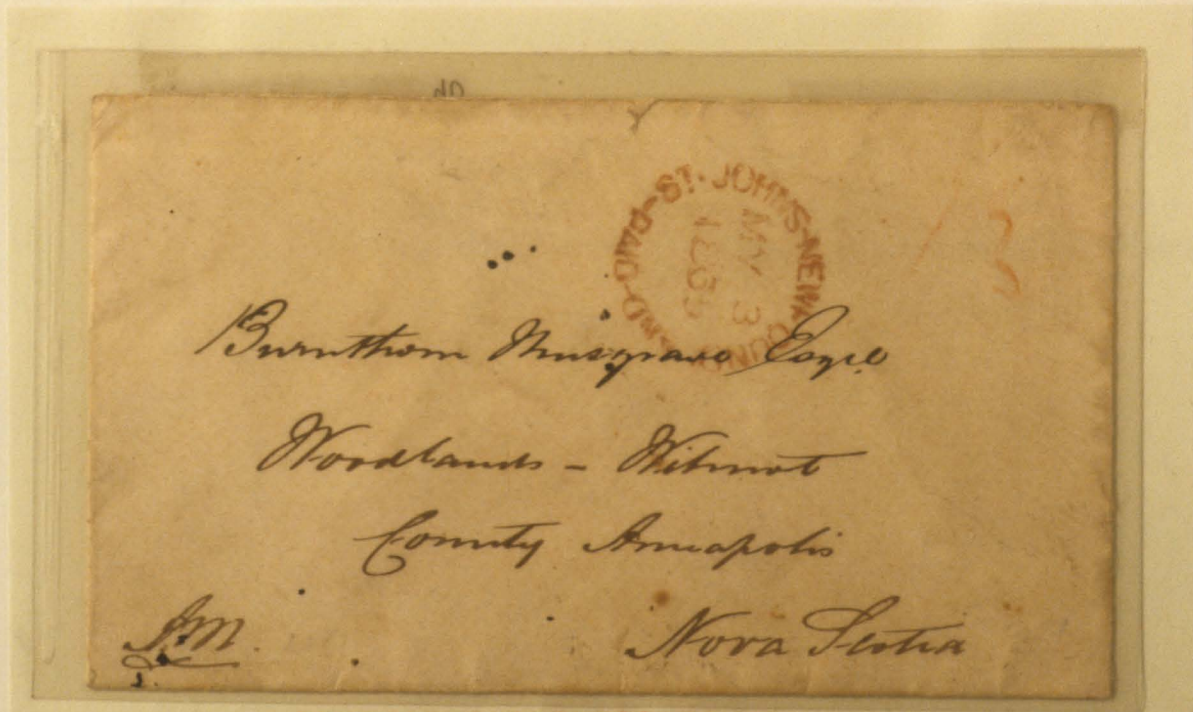 PAID-ST. JOHN'S-NEWFOUNDLAND
MY 3
Burnthorn Musgrave Esqre
Woodlands - Wilmot
County Annapolis
Nova Scotia